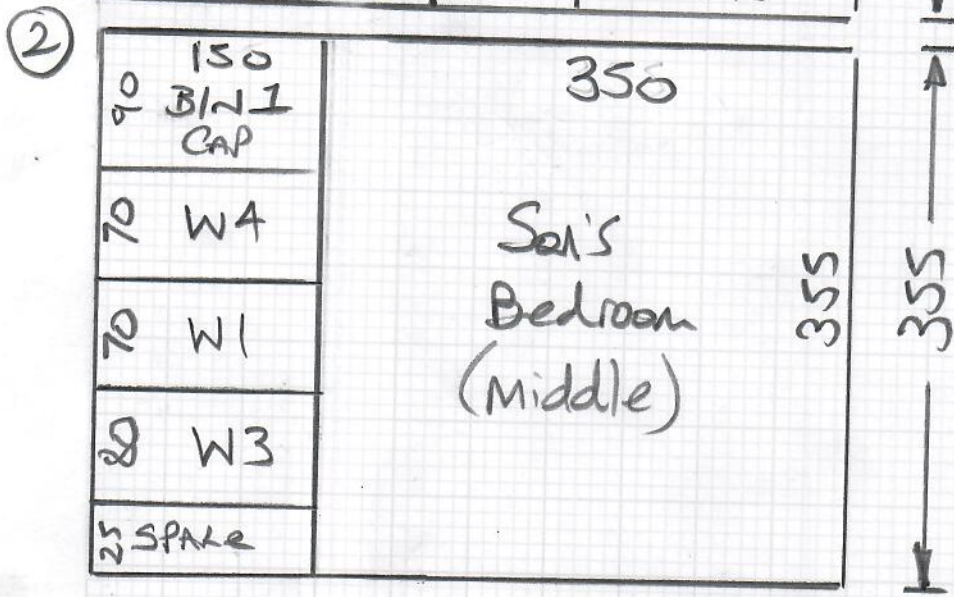 2
150
90
BIN 1
CAP
350
70 W4
70 W1
W3
25 SPARe
Son's
Bedroom
(Middle)
355
355